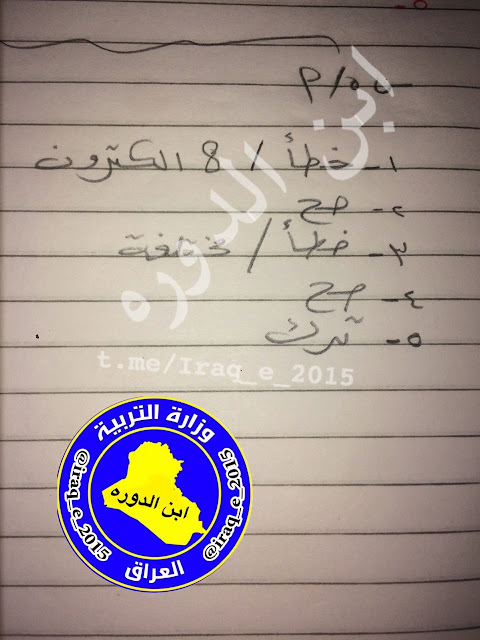 س٥/م
١- خطأ / 8 الكترون
٢- صح
٣- خطأ / مختلفة
٤- صح
٥- ترك
ابن الدوره
t.me/Iraq_e_2015
وزارة التربية
@iraq_e_2015
ابن الدوره
@iraq_e_2015
العراق